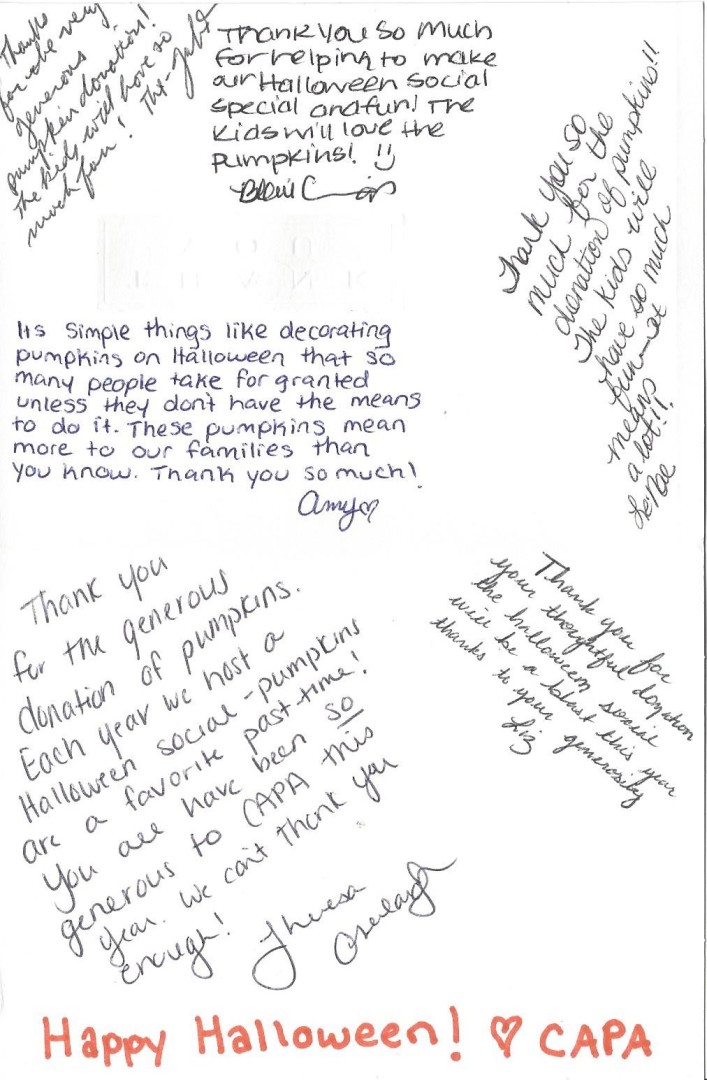 Thanks
for the very
generous
pumpkin donation!
The kids will have so
much fun! Thx-
Thank you so much
for helping to make
our Halloween social
special and fun! The
kids will love the
pumpkins!
Thank you so
much for the
donation of pumpkins!!
The kids will
have so much
fun-it
means
a lot!!
Its simple things like decorating
pumpkins on Halloween that so
many people take for granted
unless they don't have the means
to do it. These pumpkins mean
more to our families than
you know. Thank you so much!
Amy♡
Thank you
for the generous
donation of pumpkins.
Each year we host a
Halloween social-pumpkins
are a favorite past-time!
You all have been so
generous to CAPA this
year. We can't thank you
enough! Theresa
Thank you for
your thoughtful donation
the halloween social
will be a blast this year
thanks to your generosity
Liz
Happy Halloween! ♡ CAPA